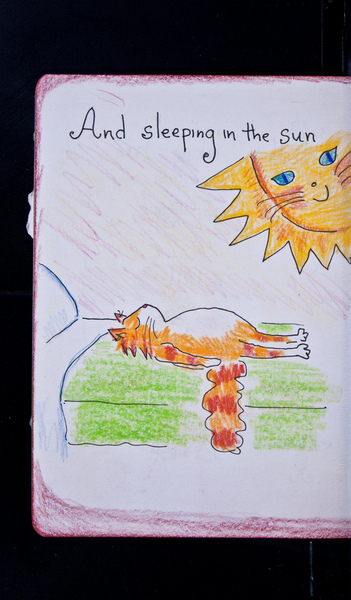 And sleeping in the sun